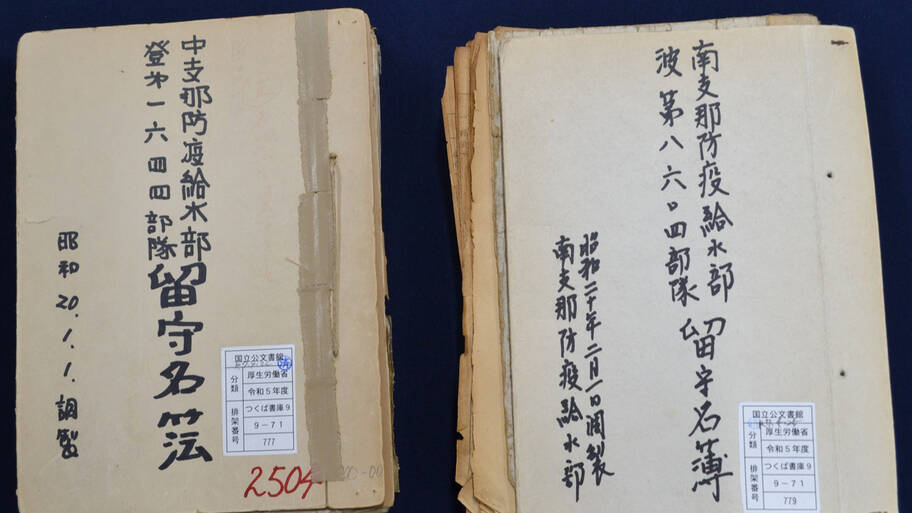 中支那防疫給水部
登才一六四四部隊
留守名簿
昭和20.1.1.調製
国立公文書館
分類
厚生労働省
令和5年度
排架番号
つくば書庫9
9-71
777
2504
南支那防疫給水部
波第八六〇四部隊
留守名簿
昭和二十年二月一日調製
南支那防疫給水部
国立公文書館
分類
厚生労働省
令和5年度
排架番号
つくば書庫9
9-71
779